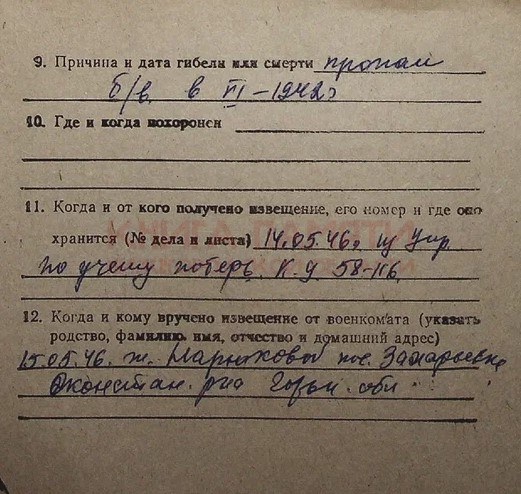 9. Причина и дата гибели или смерти пропал
б/в. в VI – 1942г
10. Где и когда похоронен
11. Когда и от кого получено извещение, его номер и где оно
хранится (№ дела и листа) 14.05.46г из Упр
по учету потерь. К.У 58-116.
12. Когда и кому вручено извещение от военкомата (указать
родство, фамилию, имя, отчество и домашний адрес)
15.05.46. ж. пос. Захарьевка
р-на Горьк. обл